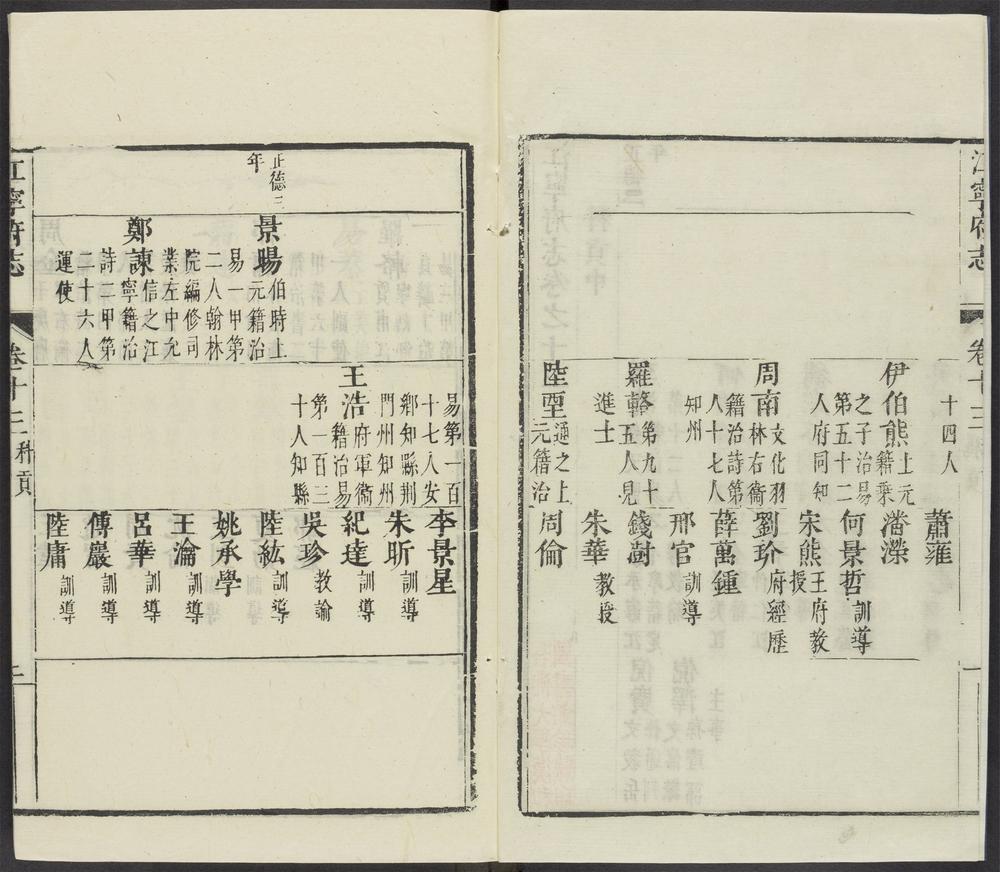 江寧府志
卷十三
十四人
伊伯熊 上元
籍乘
之子治易
第五十二
人府同知
周南 文化羽
林右衞
籍治詩第
人十七人
知州
羅輅 第九十
五人見
進士
陸堊 通之上
元籍治
蕭蓷
潘濚
何景哲 訓導
宋熊 王府教
授
劉玠 府經歷
薛萬鍾
邢官 訓導
錢澍
朱華 教授
周倫
正德三
年
景暘 伯時上
元籍治
易一甲第
二人翰林
院編修司
業左中允
鄭諫 信之江
寧籍治
詩二甲第
二十六人
運使
易第一百
十七人安
鄉知縣荆
門州知州
王浩 府軍衞
籍治易
第一百三
十人知縣
李景星
朱昕 訓導
紀達 訓導
吳珍 教諭
陸紘 訓導
姚承學
王瀹 訓導
呂華 訓導
傅巖 訓導
陸庸 訓導
江寧府志
卷十三 科貢
二